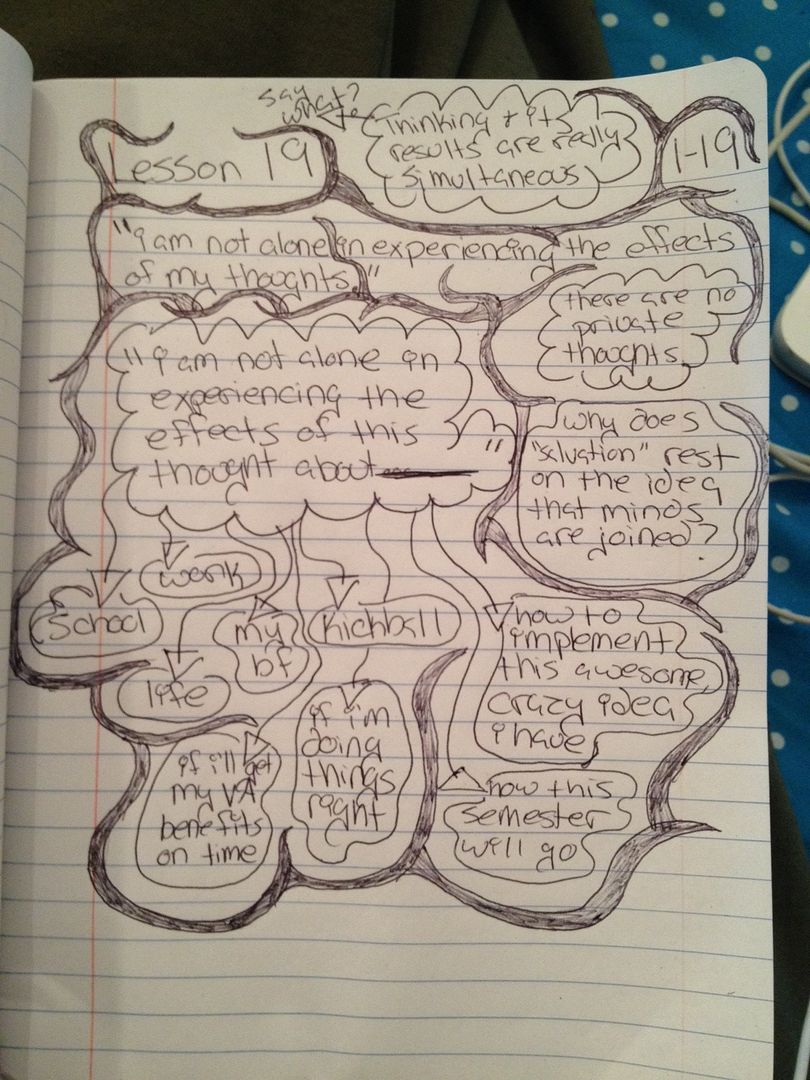 say
what?
Thinking + its
results are really
simultaneous
Lesson 19
1-19
"i am not alone in experiencing the effects
of my thoughts."
there are no
private
thoughts.
"i am not alone in
experiencing the
effects of this
thought about ___"
why does
"salvation" rest
on the idea
that minds
are joined?
work
school
my
bf
kickball
life
how to
implement
this awesome,
crazy idea
i have
if i'll get
my VA
benefits
on time
if i'm
doing
things
right
how this
semester
will go